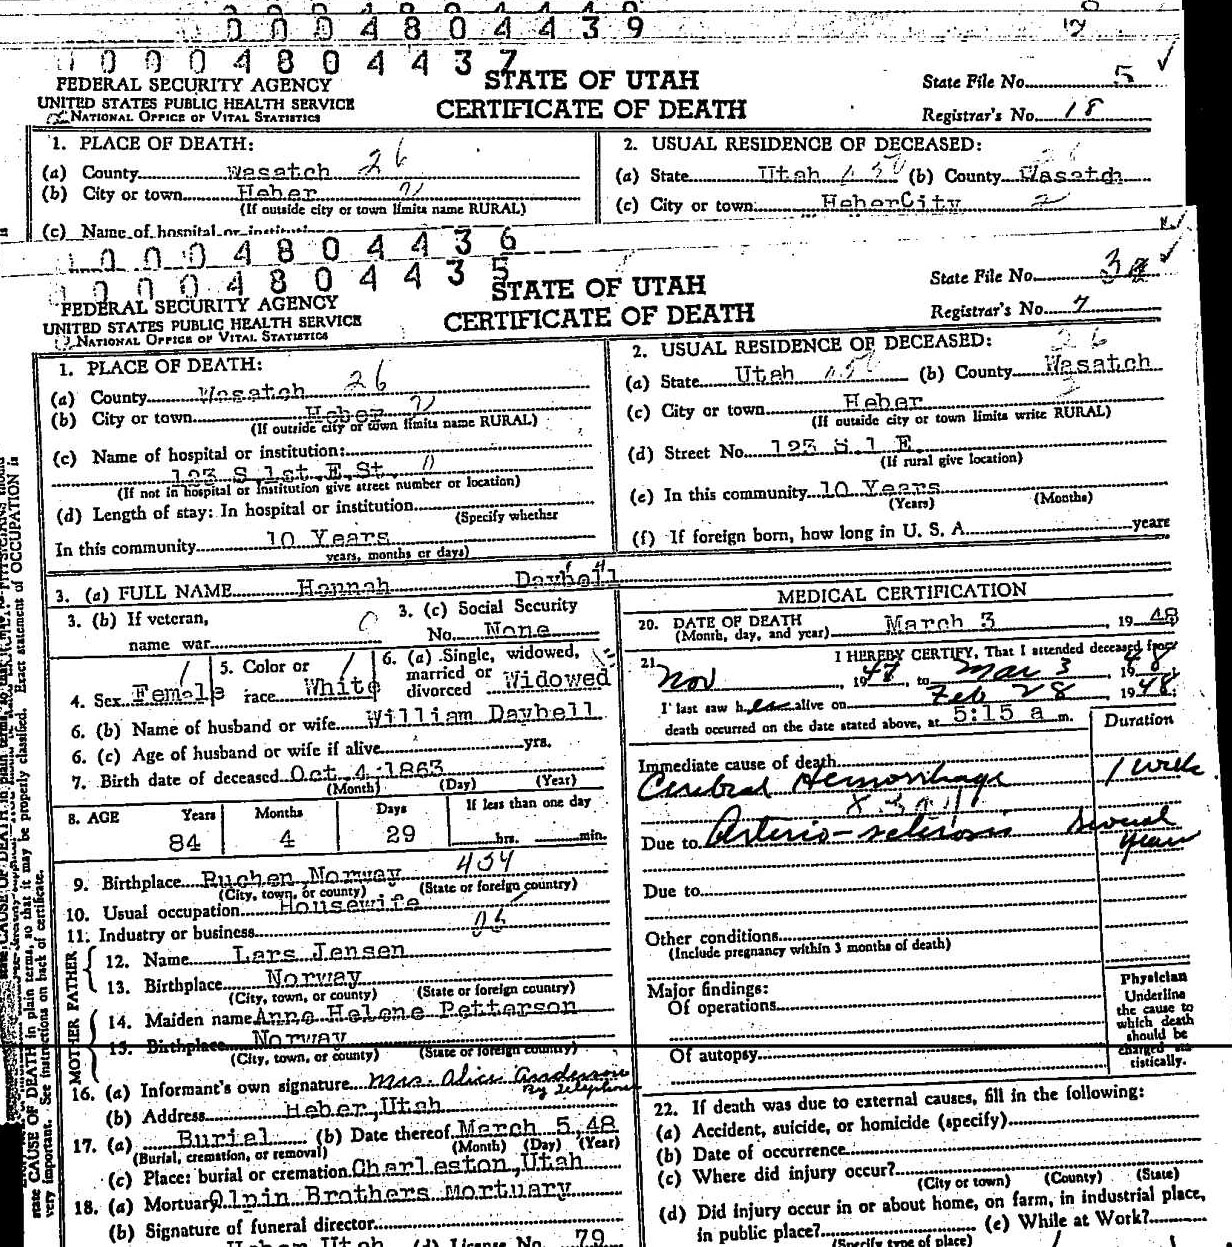 0 0 0 4 8 0 4 4 3 9
0 0 0 4 8 0 4 4 3 7
FEDERAL SECURITY AGENCY
UNITED STATES PUBLIC HEALTH SERVICE
NATIONAL OFFICE OF VITAL STATISTICS
STATE OF UTAH
CERTIFICATE OF DEATH
State File No. 5
Registrar's No. 18
1. PLACE OF DEATH:
(a) County Wasatch 26
(b) City or town Heber
(If outside city or town limits name RURAL)
(c) Name of hospital or institution:
2. USUAL RESIDENCE OF DECEASED:
(a) State Utah (b) County Wasatch
(c) City or town: Heber City
0 0 0 4 8 0 4 4 3 6
0 0 0 4 8 0 4 4 3 5
FEDERAL SECURITY AGENCY
UNITED STATES PUBLIC HEALTH SERVICE
NATIONAL OFFICE OF VITAL STATISTICS
STATE OF UTAH
CERTIFICATE OF DEATH
State File No.
Registrar's No. 7
1. PLACE OF DEATH:
(a) County Wasatch 26
(b) City or town Heber
(If outside city or town limits name RURAL)
(c) Name of hospital or institution:
123 S 1st E St
(If not in hospital or institution give street number or location)
(d) Length of stay: In hospital or institution
(Specify whether
In this community 10 Years
years, months or days)
2. USUAL RESIDENCE OF DECEASED:
26
(a) State Utah (b) County Wasatch
(c) City or town Heber
(If outside city or town limits write RURAL)
(d) Street No. 123 S 1 E
(If rural give location)
(e) In this community 10 Years
(Years) (Months)
(f) If foreign born, how long in U. S. A. years
3. (a) FULL NAME Hannah Daybell
3. (b) If veteran,
name war
3. (c) Social Security
No. None
4. Sex Female
5. Color or
race White
6. (a) Single, widowed,
married or
divorced Widowed
6. (b) Name of husband or wife William Daybell
6. (c) Age of husband or wife if alive yrs.
7. Birth date of deceased Oct 4 1863
(Month) (Day) (Year)
8. AGE Years Months Days If less than one day
84 4 29 hrs. min.
9. Birthplace Ruchen Norway 434
(City, town, or county) (State or foreign country)
10. Usual occupation Housewife
11. Industry or business
FATHER
12. Name Lars Jensen
13. Birthplace Norway
(City, town, or county) (State or foreign country)
MOTHER
14. Maiden name Anne Helene Petterson
15. Birthplace Norway
(City, town, or county) (State or foreign country)
16. (a) Informant's own signature Mrs. Alice Anderson
By Telephone
(b) Address Heber, Utah
17. (a) Burial (b) Date thereof March 5, 48
(Burial, cremation, or removal) (Month) (Day) (Year)
(c) Place: burial or cremation Charleston, Utah
18. (a) Mortuary Olpin Brothers Mortuary
(b) Signature of funeral director
Heber Utah (d) License No. 79
MEDICAL CERTIFICATION
20. DATE OF DEATH
(Month, day, and year) March 3, 1948
21. I HEREBY CERTIFY, That I attended deceased from
Nov, 1947, to Mar 3, 1948
I last saw her alive on Feb 28 1948;
death occurred on the date stated above, at 5:15 a m.
Duration
Immediate cause of death
Cerebral Hemorrhage 1 week
Due to Arterio-sclerosis Several
years
Due to
Other conditions
(Include pregnancy within 3 months of death)
Major findings:
Of operations
Of autopsy
Physician
Underline
the cause to
which death
should be
charged sta-
tistically.
22. If death was due to external causes, fill in the following:
(a) Accident, suicide, or homicide (specify)
(b) Date of occurrence
(c) Where did injury occur?
(City or town) (County) (State)
(d) Did injury occur in or about home, on farm, in industrial place,
in public place? (e) While at Work?
(Specify type of place)
state CAUSE OF DEATH in plain terms, so that it may be properly classified. Exact statement of OCCUPATION is
very important. See instructions on back of certificate.